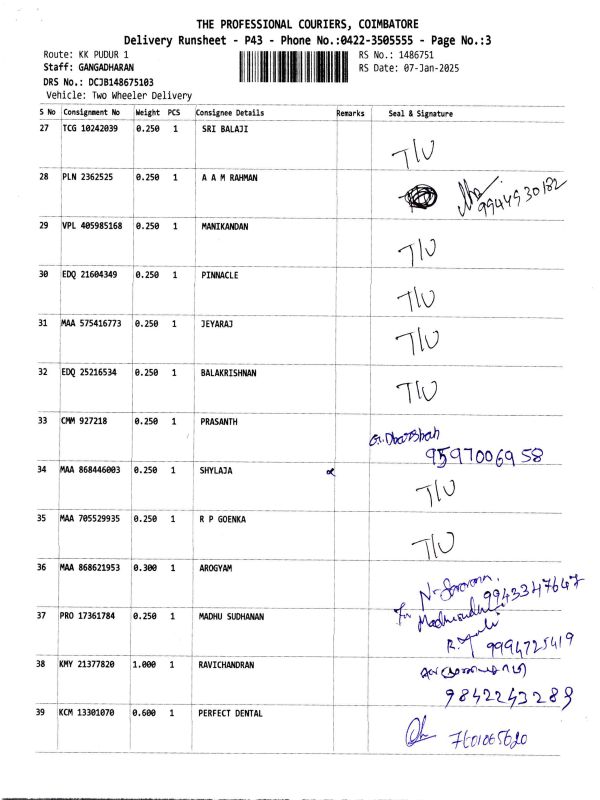 THE PROFESSIONAL COURIERS, COIMBATORE
Delivery Runsheet - P43 - Phone No.:0422-3505555 - Page No.:3
Route: KK PUDUR 1 RS No.: 1486751
Staff: GANGADHARAN RS Date: 07-Jan-2025
DRS No.: DCJB148675103
Vehicle: Two Wheeler Delivery
S No Consignment No Weight PCS Consignee Details Remarks Seal & Signature
27 TCG 10242039 0.250 1 SRI BALAJI T/U
28 PLN 2362525 0.250 1 A A M RAHMAN
29 VPL 405985168 0.250 1 MANIKANDAN T/U
30 EDQ 21604349 0.250 1 PINNACLE T/U
31 MAA 575416773 0.250 1 JEYARAJ T/U
32 EDQ 25216534 0.250 1 BALAKRISHNAN T/U
33 CMM 927218 0.250 1 PRASANTH
9597006958
34 MAA 868446003 0.250 1 SHYLAJA T/U
35 MAA 705529935 0.250 1 R P GOENKA T/U
36 MAA 868621953 0.300 1 AROGYAM
9943347647
37 PRO 17361784 0.250 1 MADHU SUDHANAN
9994725419
38 KMY 21377820 1.000 1 RAVICHANDRAN
9842243289
39 KCM 13301070 0.600 1 PERFECT DENTAL